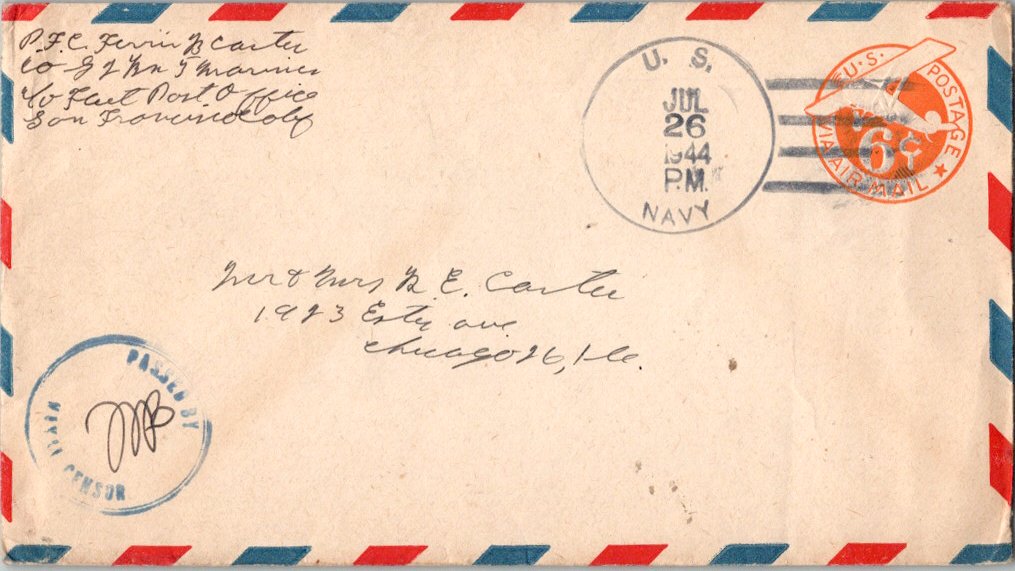 P.F.C. Ferrin B Carter
Co G 2 Bn 5 Marines
c/o Fleet Post Office
San Francisco
U. S.
JUL
26
1944
P.M.
NAVY
U.S. POSTAGE
6¢
VIA AIR MAIL
Mr & Mrs B. E. Carter
1923 ave
Chicago 26, Ill.
PASSED BY
CENSOR